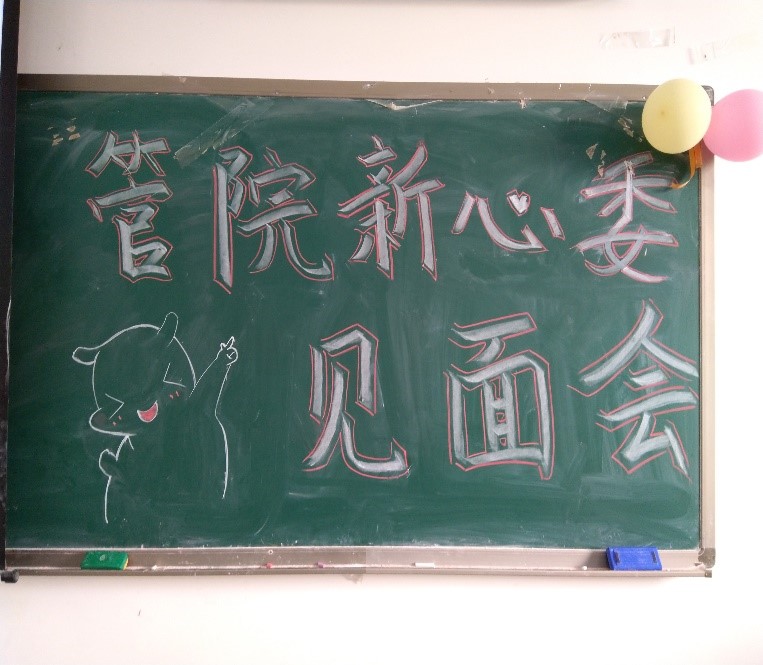 管院新心委
见面会